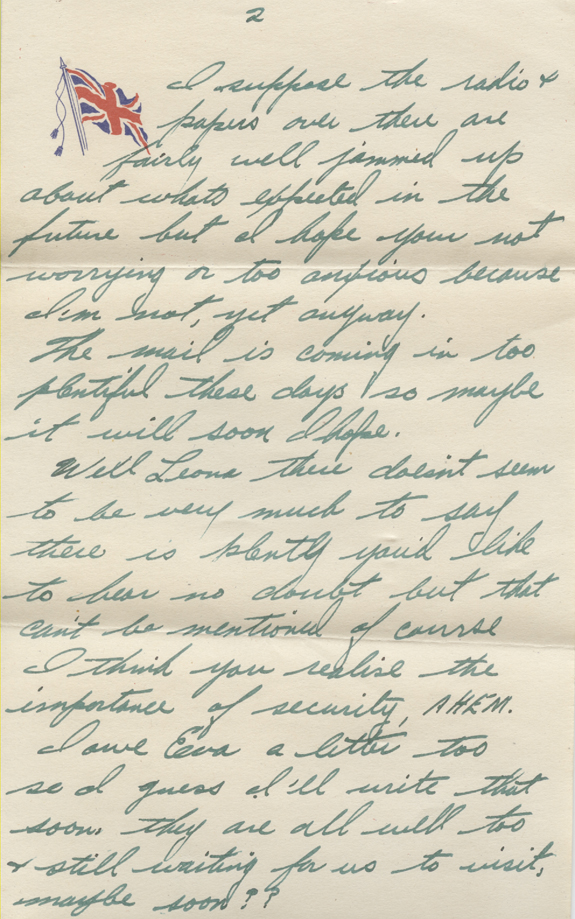 2
I suppose the radio &
papers over there are
fairly well jammed up
about whats expected in the
future but I hope your not
worrying or too anxious because
I'm not, yet anyway.
The mail is coming in too
plentiful these days so maybe
it will soon I hope.
Well Leona there doesn't seem
to be very much to say
there is plenty you'd like
to hear no doubt but that
can't be mentioned of course
I think you realise the
importance of security, AHEM.
I owe Eva a letter too
so I guess I'll write that
soon. they are all well too
& still waiting for us to visit,
maybe soon??